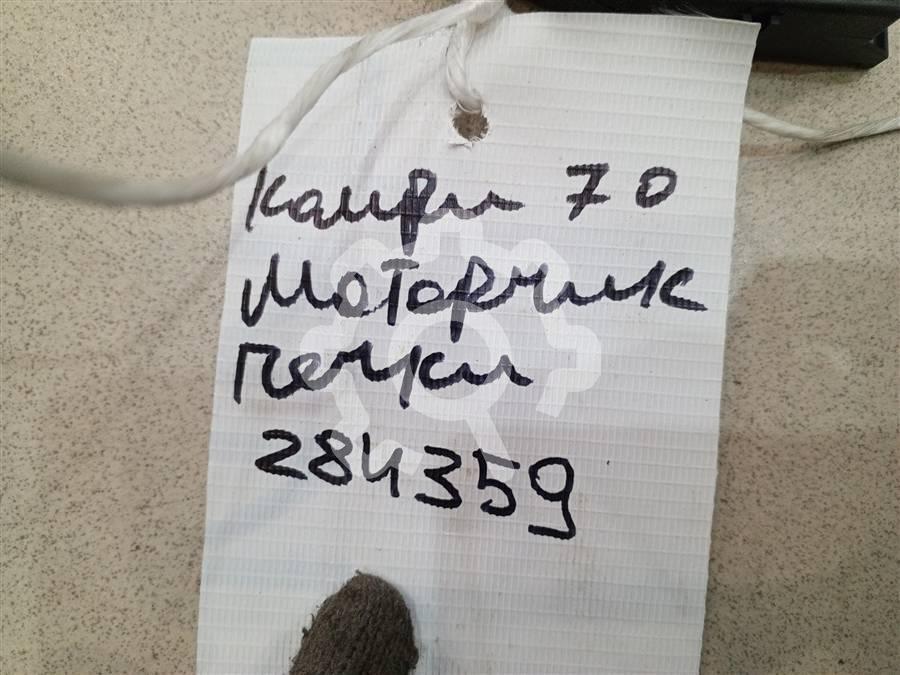 Камри 70
Моторчик
печки
284359